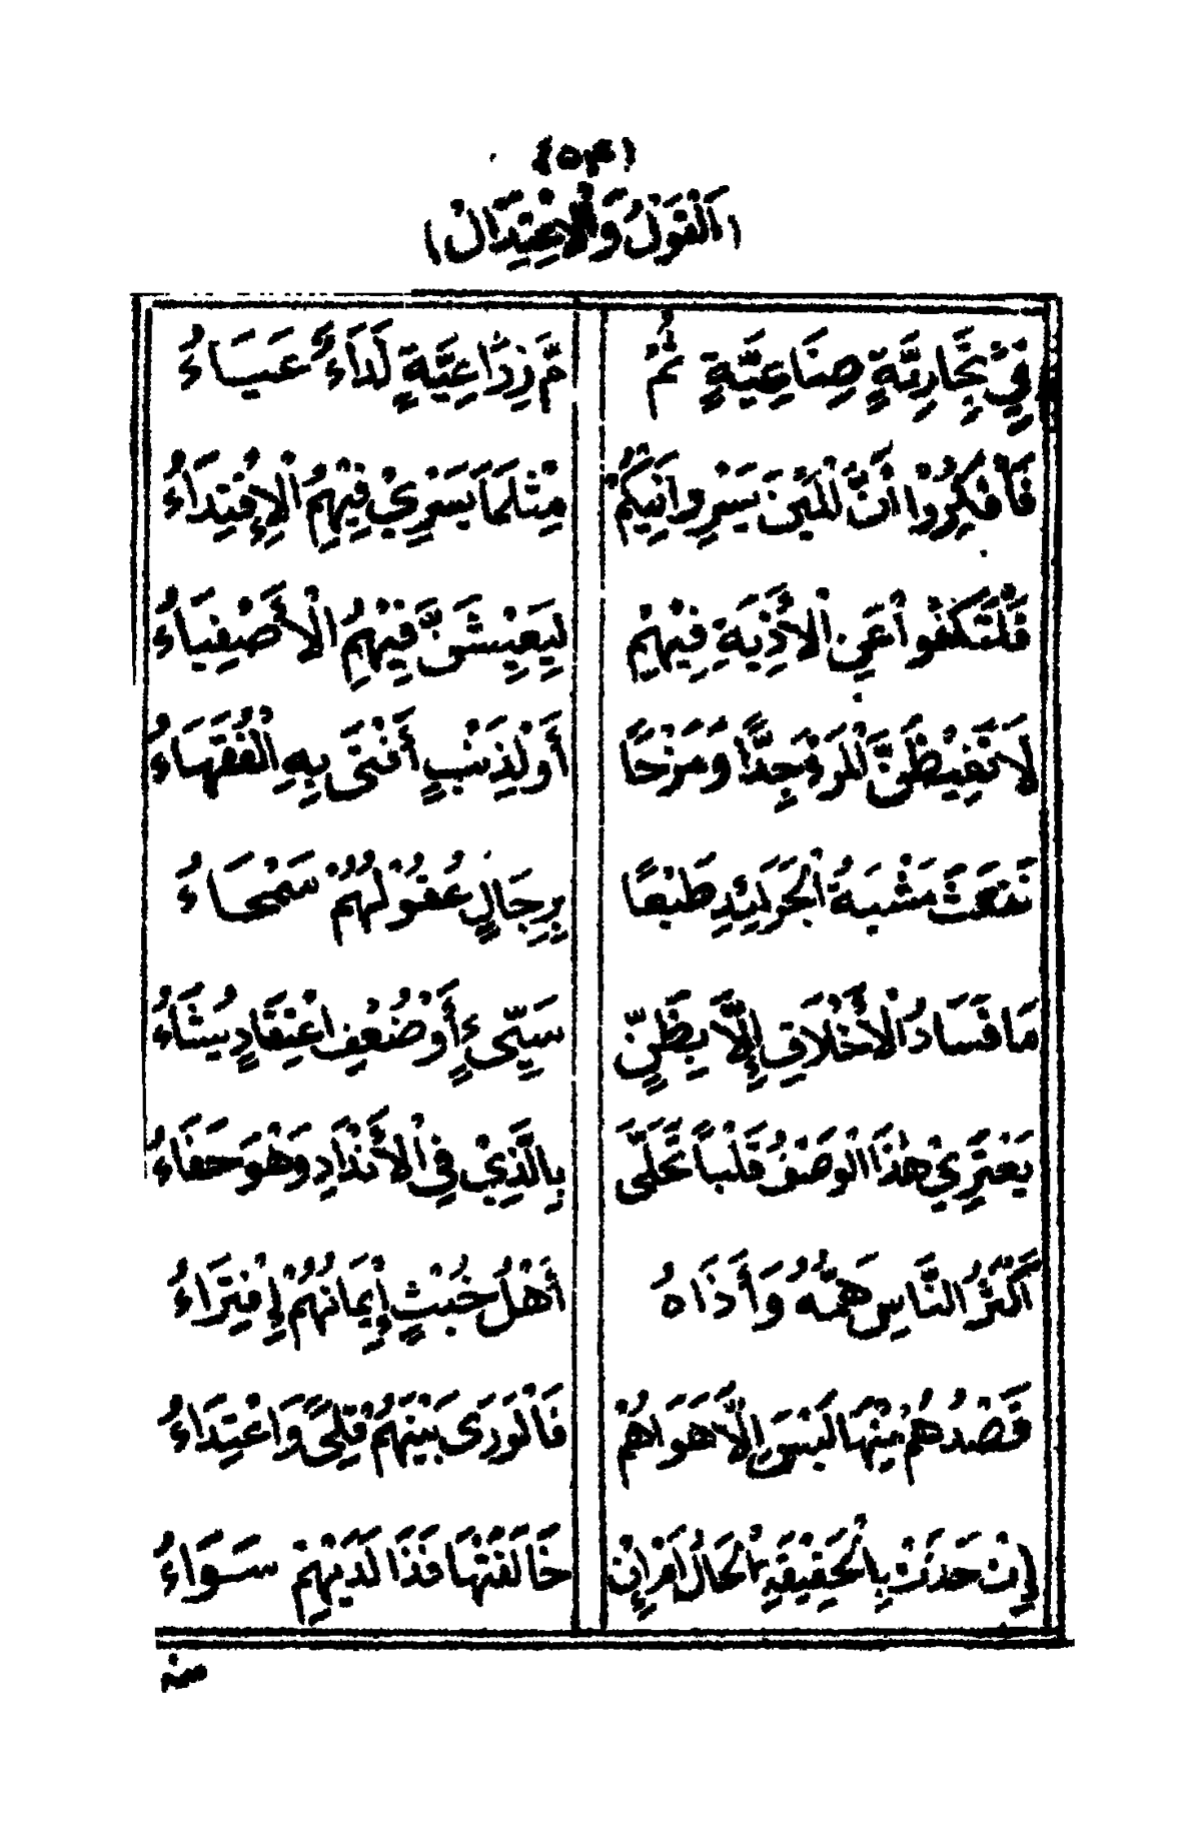 (٥٣)
(اَلْقَوْلُ وَالْاِعْتِدَالْ)
فِيْ تِجَارِيَّةٍ صِنَاعِيَّةٍ ثُمَّ زِرَاعِيَّةٍ لَدَاءٌ عَيَاءُ
فَأَفْكِرُوْا أَنَّ الْمَيْنَ يَسْرِ وَانِيكُمْ مِثْلَمَا يَسْرِيْ فِيْهِمُ الْإِقْتِدَاءُ
فَلْتَكُفُّوا عَنِ الْأَذِيَّةِ فِيْهِمْ لِيَعِيْشَنَّ فِيْهِمُ الْأَصْفِيَاءُ
لَا تَغِيْظَنَّ الْمَرْءَ جِدًّا وَمَزْحًا أَوْ لِذَنْبٍ أَفْتَى بِهِ الْفُقَهَاءُ
نَفَعَتْ مَشْبَهُ الْجَرَائِدِ طَبْعًا بِرِجَالٍ عُقُوْلُهُمْ سَمْحَاءُ
مَا فَسَادُ الْأَخْلَاقِ إِلَّا بِظَنٍّ سَيِّئٍ أَوْ ضُعْفِ اعْتِقَادٍ يُشَاءُ
يَعْتَرِيْ هٰذَا الْوَصْفُ قَلْباً تَحَلَّى بِالَّذِيْ فِي الْأَنْذَادِ وَهْوَ خَفَاءُ
أَكْثَرُ النَّاسِ هَمُّهُ وَأَذَاهُ أَهْلُ خُبْثٍ إِيمَانُهُمْ إِفْتِرَاءُ
قَصْدُهُمْ مِنْهَا لَيْسَ إِلَّا هَوَاهُمْ فَالْوَرَى بَيْنَهُمْ قِلىً وَاعْتِدَاءُ
إِنْ حَدَثَتْ بِالْحَقِيْقَةِ الْحَالُ أَمْ إِنْ خَالَفَتْهَا فَذَا لَدَيْهِمْ سَوَاءُ